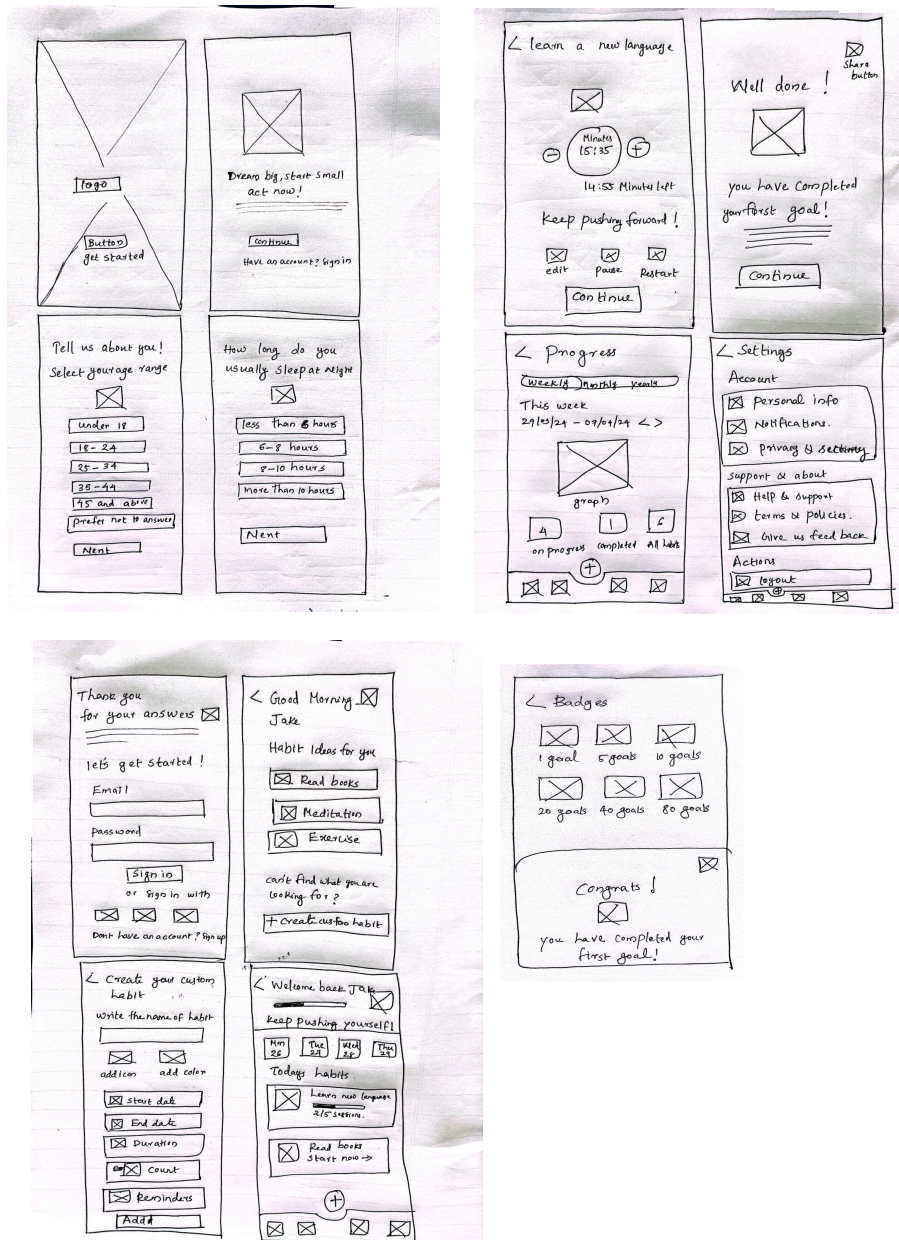 logo
Button
get started
Dream big, start small
act now!
continue
Have an account? Sign in
Tell us about you!
Select your age range
under 18
18-24
25-34
35-44
45 and above
prefer not to answer
Next
How long do you
usually sleep at night
less than 6 hours
6-8 hours
8-10 hours
more than 10 hours
Next
< learn a new language
Minutes
15:35
- +
14:55 Minutes left
Keep pushing forward!
edit Pause Restart
Continue
Share
button
Well done!
you have completed
your first goal!
Continue
< Progress
Weekly Monthly yearly
This week
29/03/24 - 04/04/24 < >
graph
4 1 6
on progress completed All habits
+
< Settings
Account
Personal info
Notifications.
privacy & security
support & about
Help & support
terms & policies.
Give us feed back
Actions
logout
+
Thank you
for your answers
let's get started!
Email
password
Sign in
or sign in with
Dont have an account? Sign up
< Good Morning
Jake
Habit Ideas for you
Read books
Meditation
Exercise
can't find what you are
looking for?
+ Create custom habit
< Create your custom
habit
write the name of habit
add icon add color
start date
End date
Duration
Count
Reminders
Addd
< Welcome back Jake
keep pushing yourself!
Mn Tue Wed Thu
26 27 28 29
Todays habits
Learn new language
2/5 sessions.
Read books
start now →
+
< Badges
1 goal 5 goals 10 goals
20 goals 40 goals 80 goals
Congrats!
you have completed your
first goal!